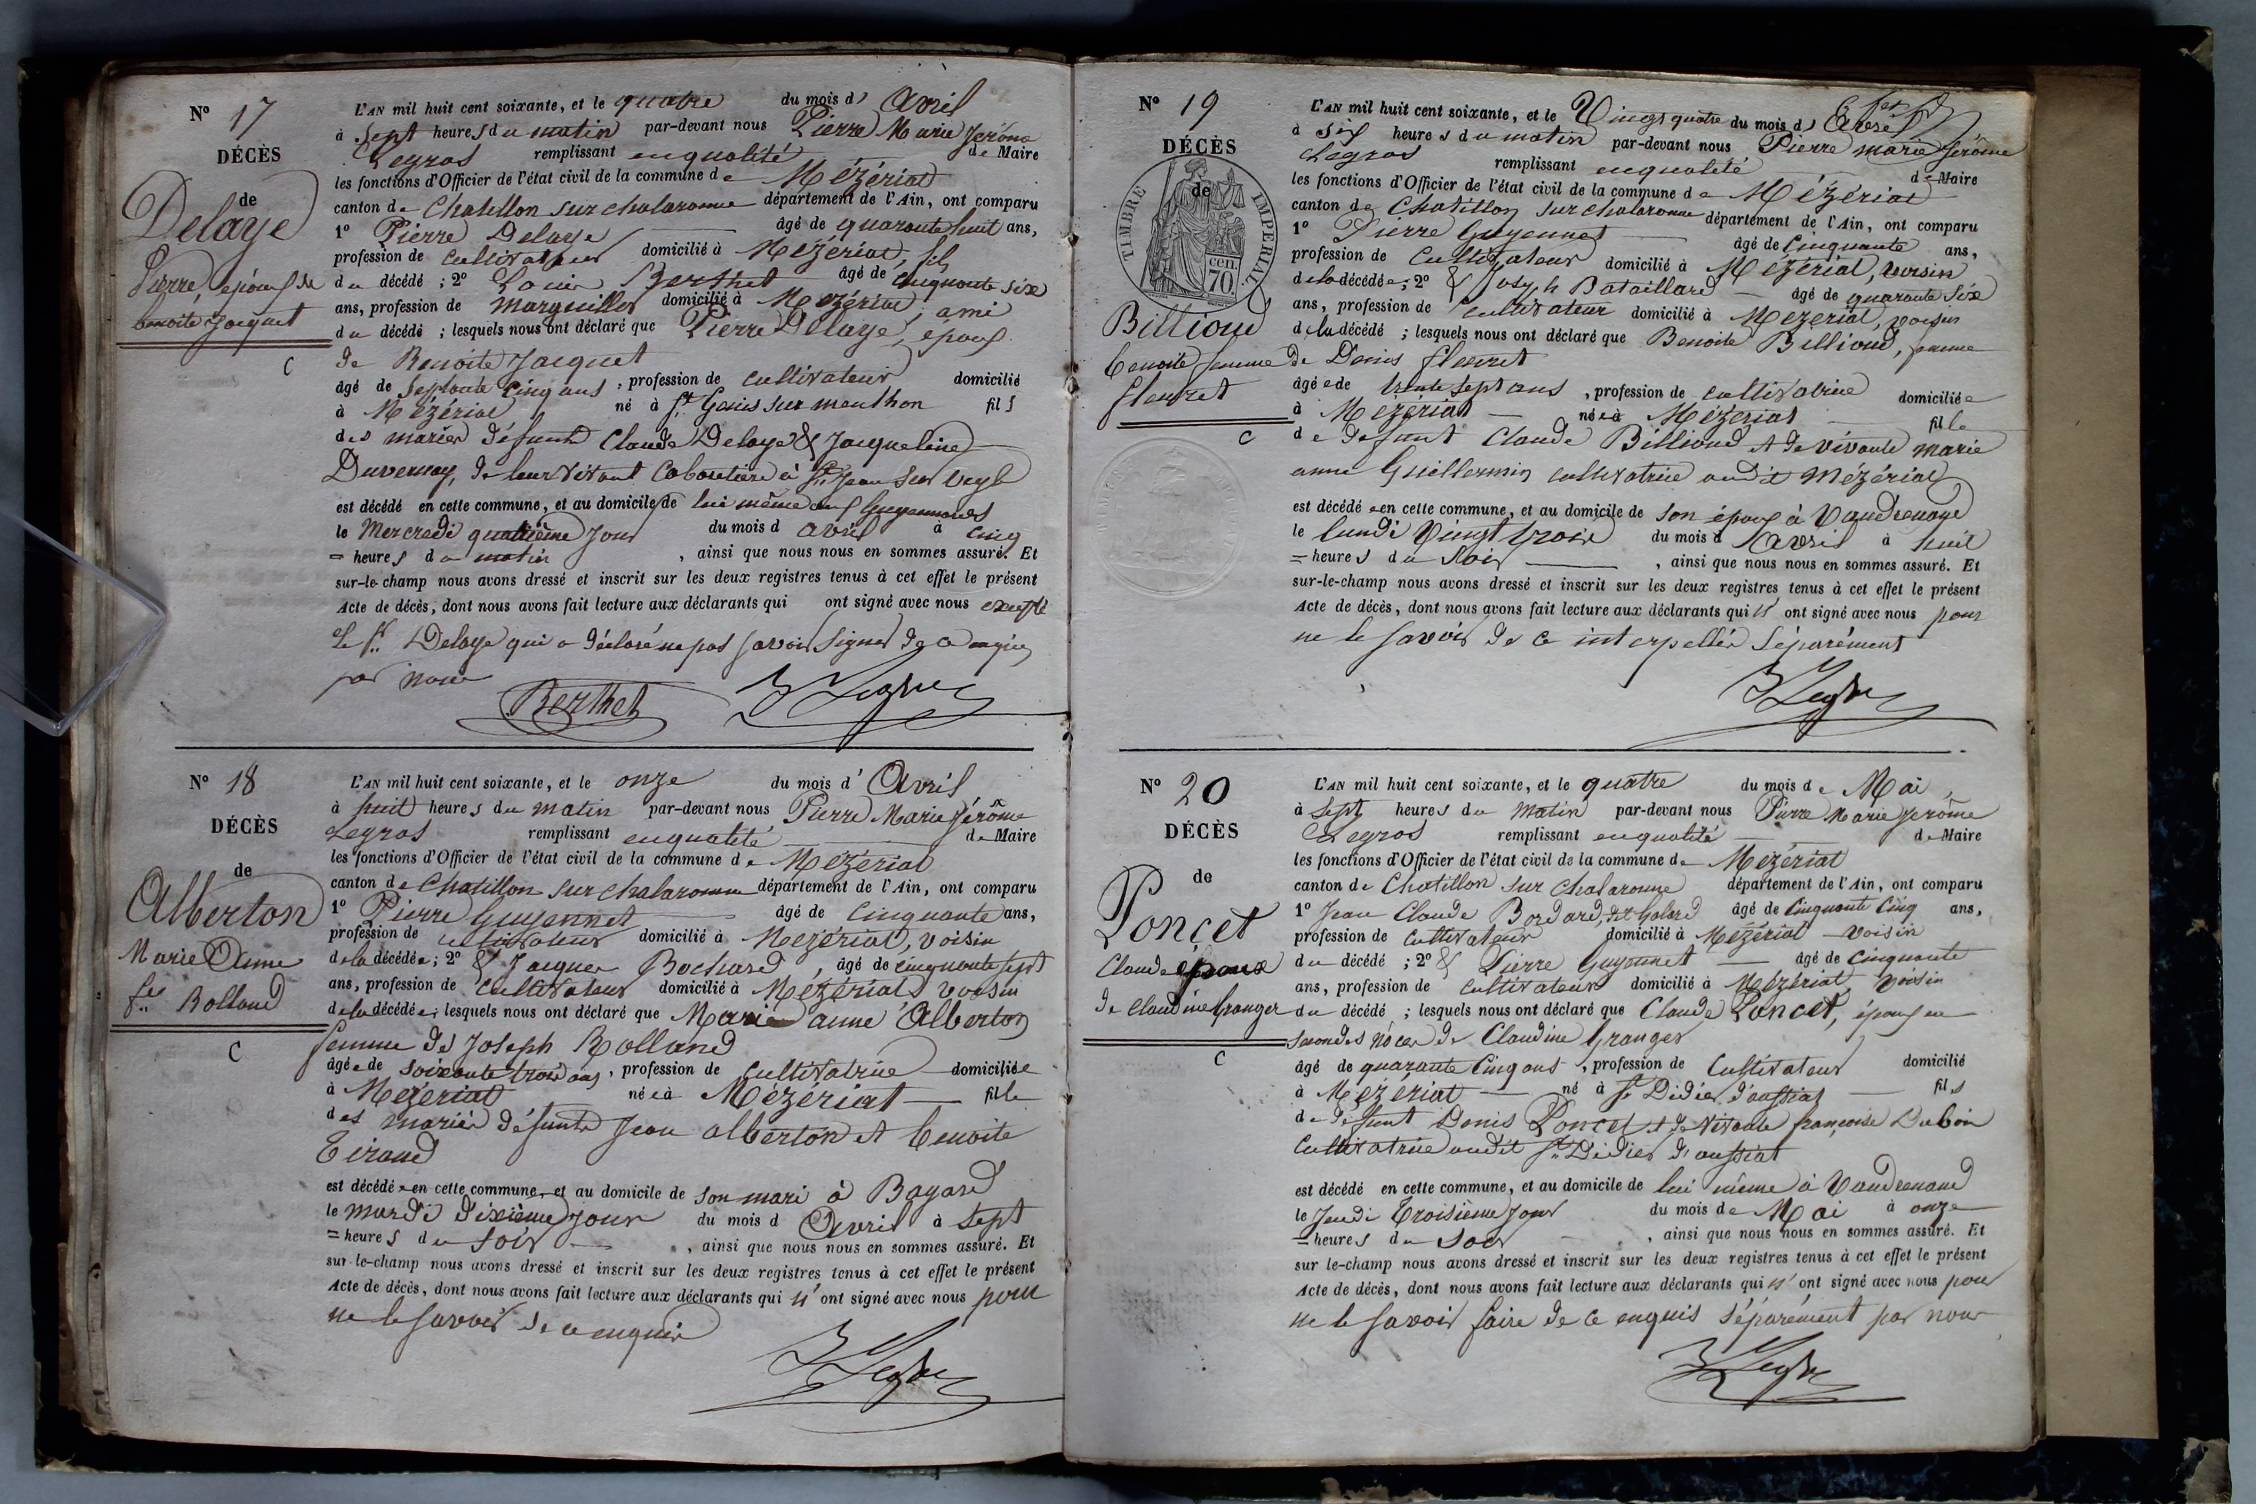 N° 17
DÉCÈS
de
Delaye
Pierre, époux de
benoite Jacquet
C
L'AN mil huit cent soixante, et le quatre du mois d' Avril
à sept heures du matin par-devant nous Pierre Marie Jérôme
Legros remplissant en qualité de Maire
les fonctions d'Officier de l'état civil de la commune de Mézériat
canton de Chatillon sur chalaronne département de l'Ain, ont comparu
1° Pierre Delaye âgé de quarante huit ans,
profession de cultivateur domicilié à Mézériat, fils
du décédé ; 2° Louis Berthet âgé de cinquante six
ans, profession de marguiller domicilié à Mézériat, ami
du décédé ; lesquels nous ont déclaré que Pierre Delaye, époux
de Benoite Jacquet
âgé de Septante cinq ans, profession de cultivateur domicilié
à Mézériat né à St Genis sur menthon fils
des mariés défunts Claude Delaye & Jacqueline
Duvernay, de leur vivant à St Jean sur veyle
est décédé en cette commune, et au domicile de lui même aux Guyennards
le Mercredi quatrième jour du mois d avril à cinq
= heures du matin, ainsi que nous nous en sommes assuré. Et
sur-le-champ nous avons dressé et inscrit sur les deux registres tenus à cet effet le présent
Acte de décès, dont nous avons fait lecture aux déclarants qui ont signé avec nous excepté
le Sr Delaye qui a déclaré ne pas savoir signer de ce enquis
par nous
Berthet Legros
N° 18
DÉCÈS
de
Alberton
Marie Anne
fe Rolland
C
L'AN mil huit cent soixante, et le onze du mois d' Avril
à huit heures du matin par-devant nous Pierre Marie Jérôme
Legros remplissant en qualité de Maire
les fonctions d'Officier de l'état civil de la commune de Mézériat
canton de Chatillon sur chalaronne département de l'Ain, ont comparu
1° Pierre Guyennet âgé de cinquante ans,
profession de cultivateur domicilié à Mézériat, voisin
de la décédée ; 2° & Jacques Bochard, âgé de cinquante sept
ans, profession de cultivateur domicilié à Mézériat voisin
de la décédée ; lesquels nous ont déclaré que Marie anne Alberton
femme de Joseph Rolland
âgée de soixante trois ans, profession de cultivatrice domiciliée
à Mézériat née à Mézériat fille
des mariés défunts Jean alberton et benoite
Tiraud
est décédée en cette commune, et au domicile de son mari à Bayard
le mardi dixième jour du mois d Avril à sept
= heures du soir, ainsi que nous nous en sommes assuré. Et
sur-le-champ nous avons dressé et inscrit sur les deux registres tenus à cet effet le présent
Acte de décès, dont nous avons fait lecture aux déclarants qui n' ont signé avec nous pour
ne le savoir de ce enquis
Legros
N° 19
DÉCÈS
de
TIMBRE IMPERIAL
70 cen.
Billioud
benoite femme
fleurret
C
L'AN mil huit cent soixante, et le Vingt quatre du mois d' Avril
à six heures du matin par-devant nous Pierre marie jérôme
Legros remplissant en qualité de Maire
les fonctions d'Officier de l'état civil de la commune de Mézériat
canton de Chatillon sur chalaronne département de l'Ain, ont comparu
1° Pierre Guyennet âgé de cinquante ans,
profession de Cultivateur domicilié à Mézériat, voisin
de la décédée ; 2° & Joseph Bataillard âgé de quarante six
ans, profession de cultivateur domicilié à Mézériat, voisin
de la décédée ; lesquels nous ont déclaré que Benoite Billioud, femme
de Denis fleurret
âgée de trente sept ans, profession de cultivatrice domiciliée
à Mézériat née à Mézériat fille
de défunt Claude Billioud et de vivante marie
anne Guillermin cultivatrice audit Mézériat
est décédée en cette commune, et au domicile de son époux à Vaudrenand
le lundi vingt trois du mois d avril à huit
= heures du Soir, ainsi que nous nous en sommes assuré. Et
sur-le-champ nous avons dressé et inscrit sur les deux registres tenus à cet effet le présent
Acte de décès, dont nous avons fait lecture aux déclarants qui n' ont signé avec nous pour
ne le savoir de ce interpellés séparément
Legros
N° 20
DÉCÈS
de
Poncet
Claude époux
de claudine Granger
C
L'AN mil huit cent soixante, et le quatre du mois de Mai
à sept heures du matin par-devant nous Pierre Marie Jerôme
Legros remplissant en qualité de Maire
les fonctions d'Officier de l'état civil de la commune de Mézériat
canton de Chatillon sur Chalaronne département de l'Ain, ont comparu
1° Jean Claude Bordard, dit Golard âgé de cinquante cinq ans,
profession de Cultivateur domicilié à Mézériat voisin
du décédé ; 2° & Pierre Guyonnet âgé de cinquante
ans, profession de Cultivateur domicilié à Mézériat, voisin
du décédé ; lesquels nous ont déclaré que Claude Poncet, époux en
secondes noces de Claudine Granger
âgé de quarante cinq ans, profession de Cultivateur domicilié
à Mézériat né à St Didier d'aussiat fils
de défunt Denis Poncet et de vivante françoise Dubois
Cultivatrice audit St Didier d'aussiat
est décédé en cette commune, et au domicile de lui même à Vaudrenand
le Jeudi Troisième jour du mois de Mai à onze
= heures du soir, ainsi que nous nous en sommes assuré. Et
sur le-champ nous avons dressé et inscrit sur les deux registres tenus à cet effet le présent
Acte de décès, dont nous avons fait lecture aux déclarants qui n' ont signé avec nous pour
ne le savoir faire de ce enquis séparément par nous
Legros